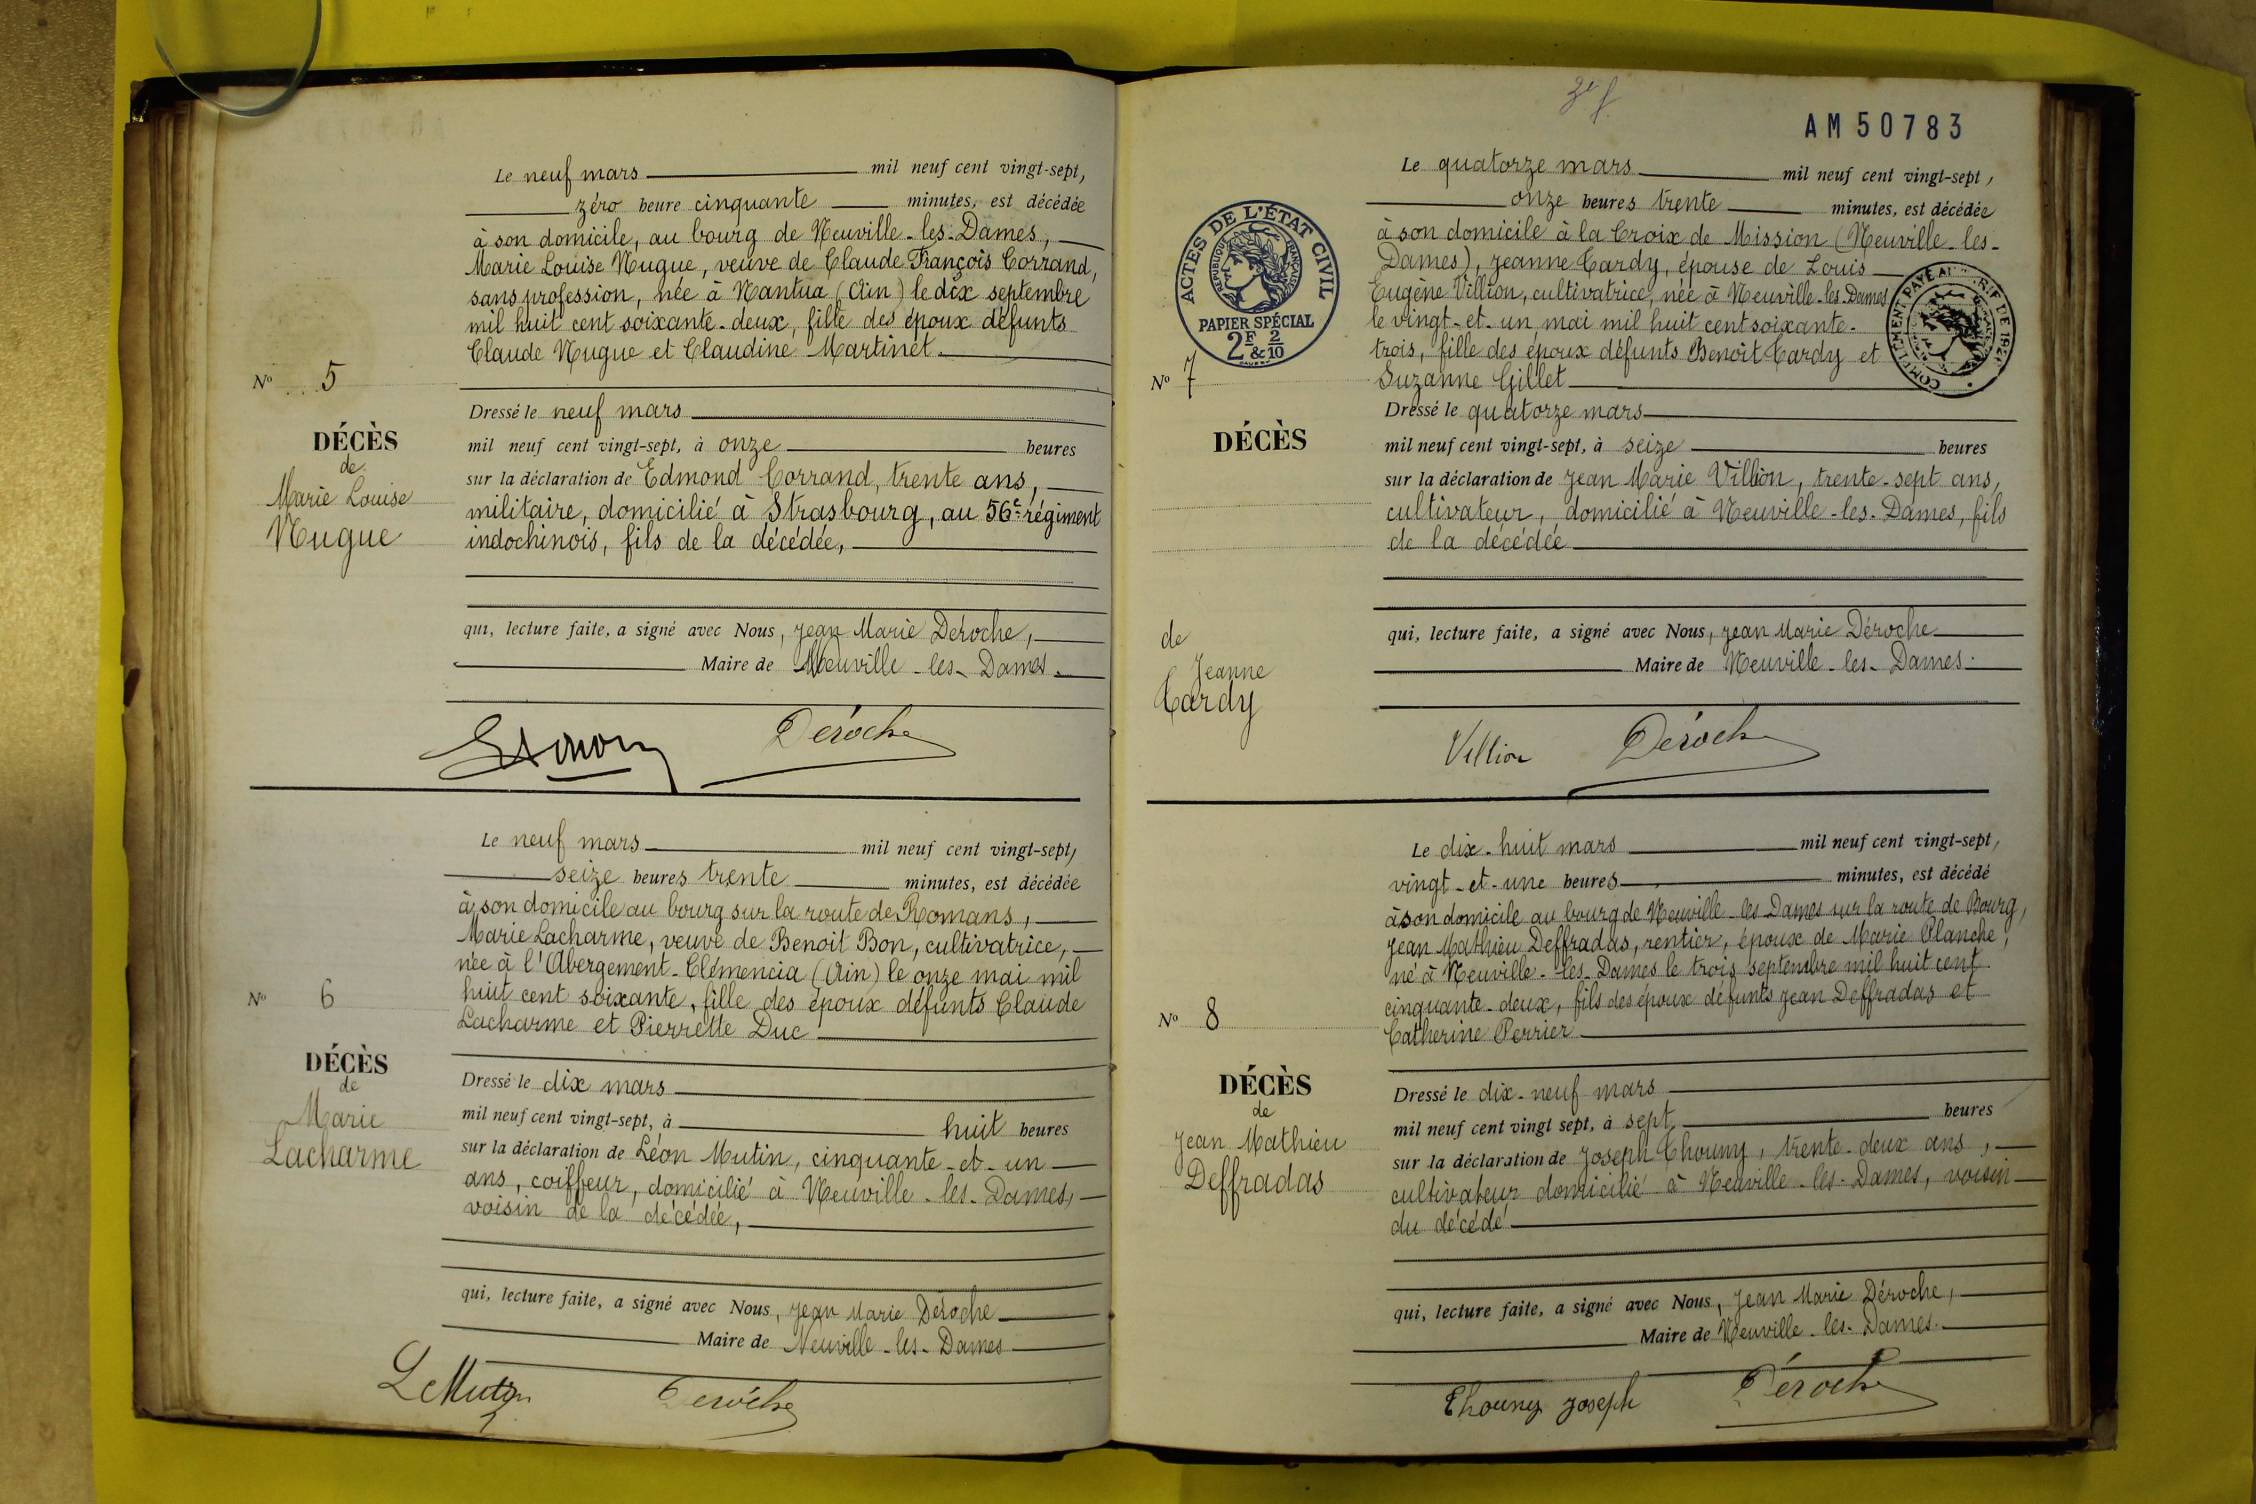 Le neuf mars mil neuf cent vingt-sept,
zéro heure cinquante minutes, est décédée
à son domicile, au bourg de Neuville-les-Dames,
Marie Louise Nugue, veuve de Claude François Corrand,
sans profession, née à Nantua (Ain) le dix septembre
mil huit cent soixante-deux, fille des époux défunts
Claude Nugue et Claudine Martinet.
No 5
DÉCÈS
de
Marie Louise
Nugue
Dressé le neuf mars
mil neuf cent vingt-sept, à onze heures
sur la déclaration de Edmond Corrand, trente ans,
militaire, domicilié à Strasbourg, au 56e régiment
indochinois, fils de la décédée,
qui, lecture faite, a signé avec Nous, Jean Marie Déroche,
Maire de Neuville-les-Dames.
Déroche
Le neuf mars mil neuf cent vingt-sept,
seize heures trente minutes, est décédée
à son domicile au bourg sur la route de Romans,
Marie Lacharme, veuve de Benoit Bon, cultivatrice,
née à l'Abergement-Clémencia (Ain) le onze mai mil
huit cent soixante, fille des époux défunts Claude
Lacharme et Pierrette Duc
No 6
DÉCÈS
de
Marie
Lacharme
Dressé le dix mars
mil neuf cent vingt-sept, à huit heures
sur la déclaration de Léon Mutin, cinquante-et-un
ans, coiffeur, domicilié à Neuville-les-Dames,
voisin de la décédée,
qui, lecture faite, a signé avec Nous, Jean Marie Déroche
Maire de Neuville-les-Dames
L Mutin Déroche
AM 50783
Le quatorze mars mil neuf cent vingt-sept,
onze heures trente minutes, est décédée
à son domicile à la Croix de Mission (Neuville-les-
Dames), Jeanne Cardy, épouse de Louis
Eugène Villion, cultivatrice, née à Neuville-les-Dames
le vingt-et-un mai mil huit cent soixante-
trois, fille des époux défunts Benoit Cardy et
Suzanne Gillet
ACTES DE L'ÉTAT CIVIL
RÉPUBLIQUE FRANÇAISE
PAPIER SPÉCIAL
2F & 2/10
COMPLÉMENT PAYÉ AU TARIF DE
No 7
DÉCÈS
de
Jeanne
Cardy
Dressé le quatorze mars
mil neuf cent vingt-sept, à seize heures
sur la déclaration de Jean Marie Villion, trente-sept ans,
cultivateur, domicilié à Neuville-les-Dames, fils
de la décédée
qui, lecture faite, a signé avec Nous, Jean Marie Déroche
Maire de Neuville-les-Dames.
Villion Déroche
Le dix-huit mars mil neuf cent vingt-sept,
vingt-et-une heures minutes, est décédé
à son domicile au bourg de Neuville-les-Dames sur la route de Bourg,
Jean Mathieu Deffradas, rentier, époux de Marie Planche,
né à Neuville-les-Dames le trois septembre mil huit cent
cinquante-deux, fils des époux défunts Jean Deffradas et
Catherine Perrier
No 8
DÉCÈS
de
Jean Mathieu
Deffradas
Dressé le dix-neuf mars
mil neuf cent vingt sept, à sept heures
sur la déclaration de Joseph Thouny, trente-deux ans,
cultivateur domicilié à Neuville-les-Dames, voisin
du décédé
qui, lecture faite, a signé avec Nous, Jean Marie Déroche,
Maire de Neuville-les-Dames.
Thouny Joseph Déroche